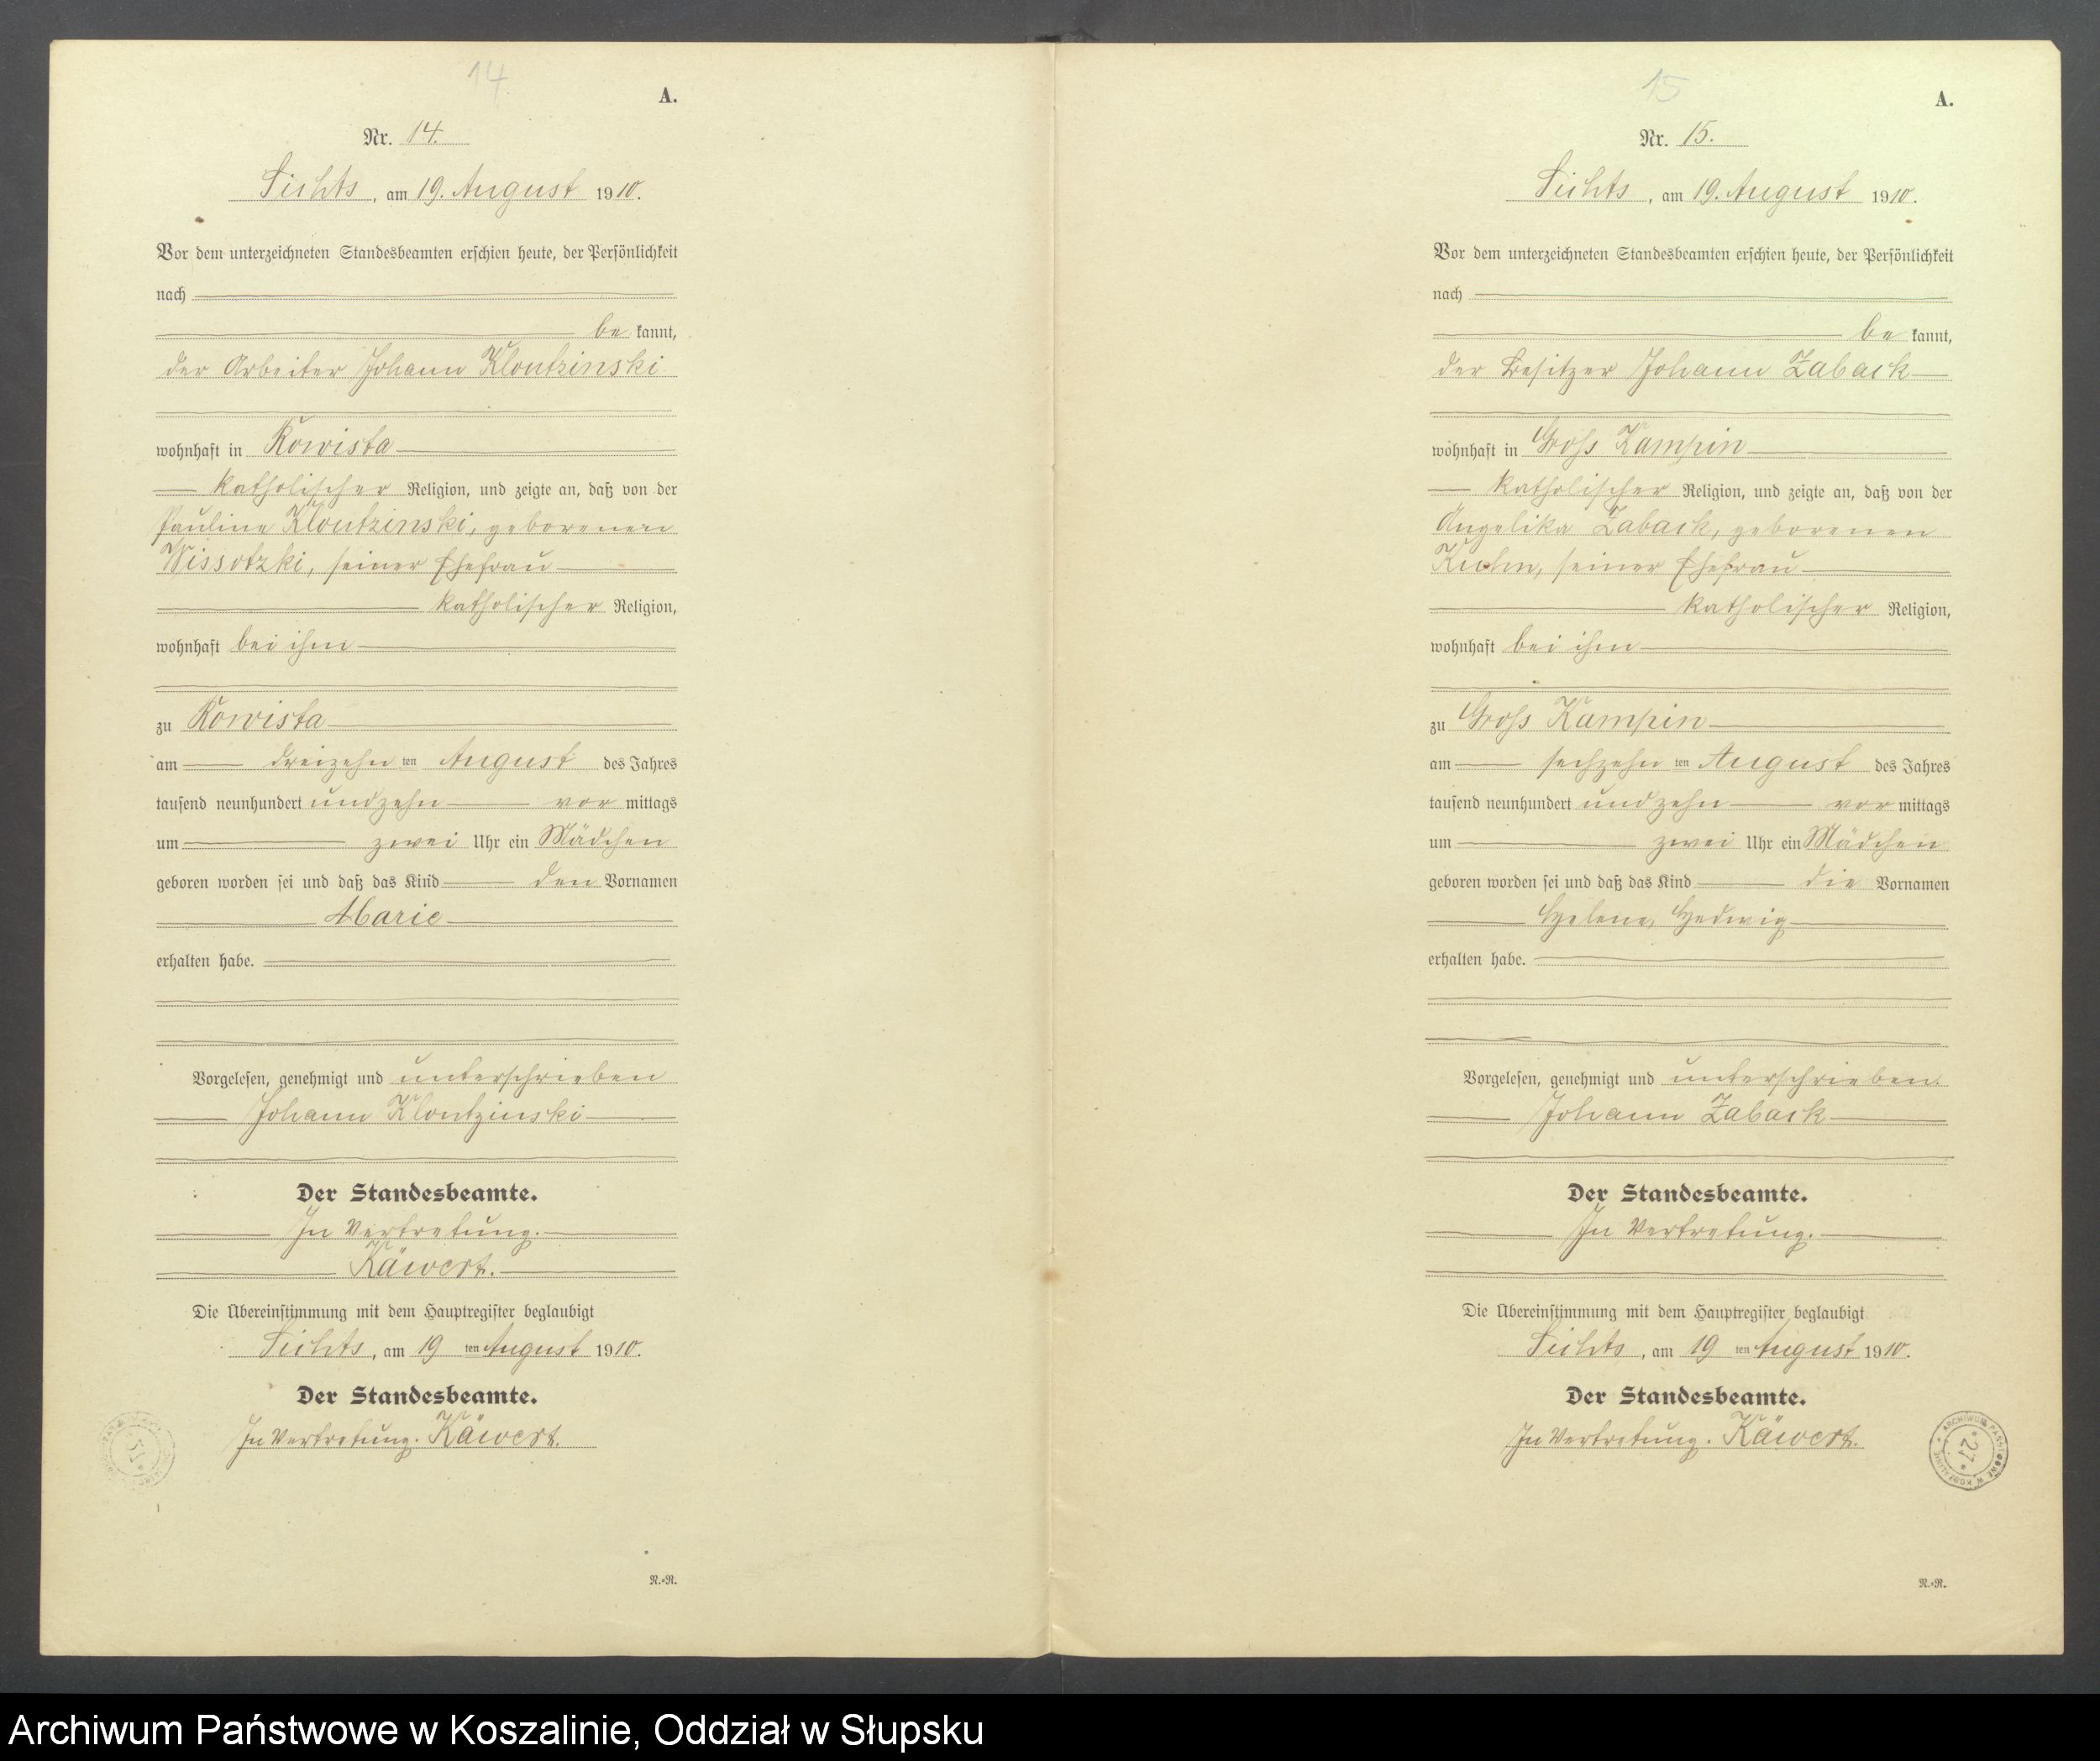 14
A.
Nr. 14.
Sichts, am 19. August 1910.
Vor dem unterzeichneten Standesbeamten erschien heute, der Persönlichkeit
nach
be kannt,
der Arbeiter Johann Kloutzinski
wohnhaft in Rowista
katholischer Religion, und zeigte an, daß von der
Pauline Kloutzinski, geborenen
Wissotzki, seiner Ehefrau
katholischer Religion,
wohnhaft bei ihm
zu Rowista
am dreizehn ten August des Jahres
tausend neunhundert und zehn vor mittags
um zwei Uhr ein Mädchen
geboren worden sei und daß das Kind den Vornamen
Marie
erhalten habe.
Vorgelesen, genehmigt und unterschrieben
Johann Kloutzinski
Der Standesbeamte.
In Vertretung.
Käwert.
Die Übereinstimmung mit dem Hauptregister beglaubigt
Sichts, am 19 ten August 1910.
Der Standesbeamte.
In Vertretung. Käwert.
R.-R.
15
A.
Nr. 15.
Sichts, am 19. August 1910.
Vor dem unterzeichneten Standesbeamten erschien heute, der Persönlichkeit
nach
be kannt,
der Besitzer Johann Zaback
wohnhaft in Gross Kampin
katholischer Religion, und zeigte an, daß von der
Angelika Zaback, geborenen
seiner Ehefrau
katholischer Religion,
wohnhaft bei ihm
zu Gross Kampin
am sechzehn ten August des Jahres
tausend neunhundert und zehn vor mittags
um zwei Uhr ein Mädchen
geboren worden sei und daß das Kind die Vornamen
Helene, Hedwig
erhalten habe.
Vorgelesen, genehmigt und unterschrieben.
Johann Zaback
Der Standesbeamte.
In Vertretung.
Die Übereinstimmung mit dem Hauptregister beglaubigt
Sichts, am 19 ten August 1910.
Der Standesbeamte.
In Vertretung. Käwert.
ARCHIWUM PAŃSTWOWE W KOSZALINIE
* 27 *
R.-R.
Archiwum Państwowe w Koszalinie, Oddział w Słupsku